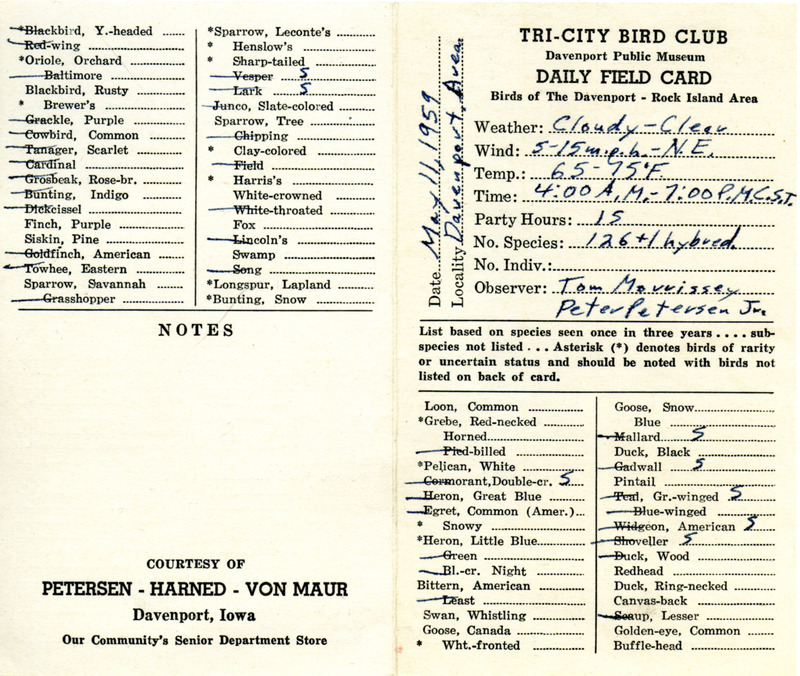 *Blackbird, Y.-headed ......
Red-wing ......
*Oriole, Orchard ......
Baltimore ......
Blackbird, Rusty ......
* Brewer's ......
Grackle, Purple ......
Cowbird, Common ......
Tanager, Scarlet ......
Cardinal ......
Grosbeak, Rose-br. ......
Bunting, Indigo ......
Dickcissel ......
Finch, Purple ......
Siskin, Pine ......
Goldfinch, American ......
Towhee, Eastern ......
Sparrow, Savannah ......
Grasshopper ......
*Sparrow, Leconte's ......
* Henslow's ......
* Sharp-tailed ......
Vesper ...... S
Lark ...... S
Junco, Slate-colored ......
Sparrow, Tree ......
Chipping ......
* Clay-colored ......
Field ......
* Harris's ......
White-crowned ......
White-throated ......
Fox ......
Lincoln's ......
Swamp ......
Song ......
*Longspur, Lapland ......
*Bunting, Snow ......
NOTES
COURTESY OF
PETERSEN - HARNED - VON MAUR
Davenport, Iowa
Our Community's Senior Department Store
Date May 11, 1959
Locality Davenport, Area
TRI-CITY BIRD CLUB
Davenport Public Museum
DAILY FIELD CARD
Birds of The Davenport - Rock Island Area
Weather: Cloudy-Clear
Wind: 5-15 m.p.h.-N.E.
Temp.: 65-75°F
Time: 4:00 A.M.-7:00 P.M. C.S.T.
Party Hours: 15
No. Species: 126+1 hybred
No. Indiv.:
Observer: Tom Morrissey
Peter Petersen Jr.
List based on species seen once in three years .... sub-
species not listed ... Asterisk (*) denotes birds of rarity
or uncertain status and should be noted with birds not
listed on back of card.
Loon, Common ......
*Grebe, Red-necked ......
Horned......
Pied-billed ......
*Pelican, White ......
Cormorant,Double-cr. S
Heron, Great Blue ......
Egret, Common (Amer.)...
* Snowy ......
*Heron, Little Blue......
Green ......
Bl.-cr. Night ......
Bittern, American ......
Least ......
Swan, Whistling ......
Goose, Canada ......
* Wht.-fronted ......
Goose, Snow......
Blue ......
Mallard ...... S
Duck, Black ......
Gadwall ...... S
Pintail ......
Teal, Gr.-winged S
Blue-winged ......
Widgeon, American S
Shoveller ...... S
Duck, Wood ......
Redhead ......
Duck, Ring-necked ......
Canvas-back ......
Scaup, Lesser ......
Golden-eye, Common ......
Buffle-head ......